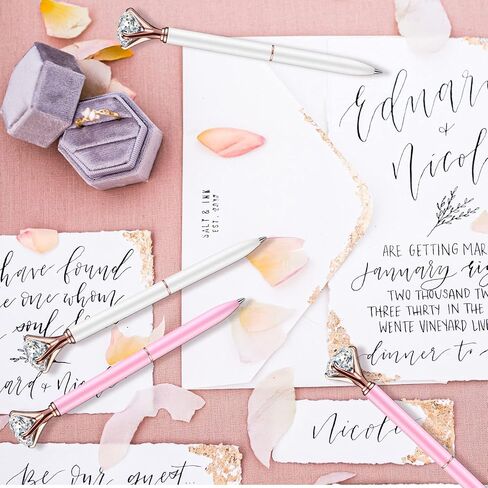 Edward
&
Nicol
ARE GETTING MAR
January eig
TWO THOUSAND TW
THREE THIRTY IN THE
WENTE VINEYARD LIVE
dinner to
SALT & INK
have found
e one whom
soul
ard & Nic
Nicol
Be our guest...